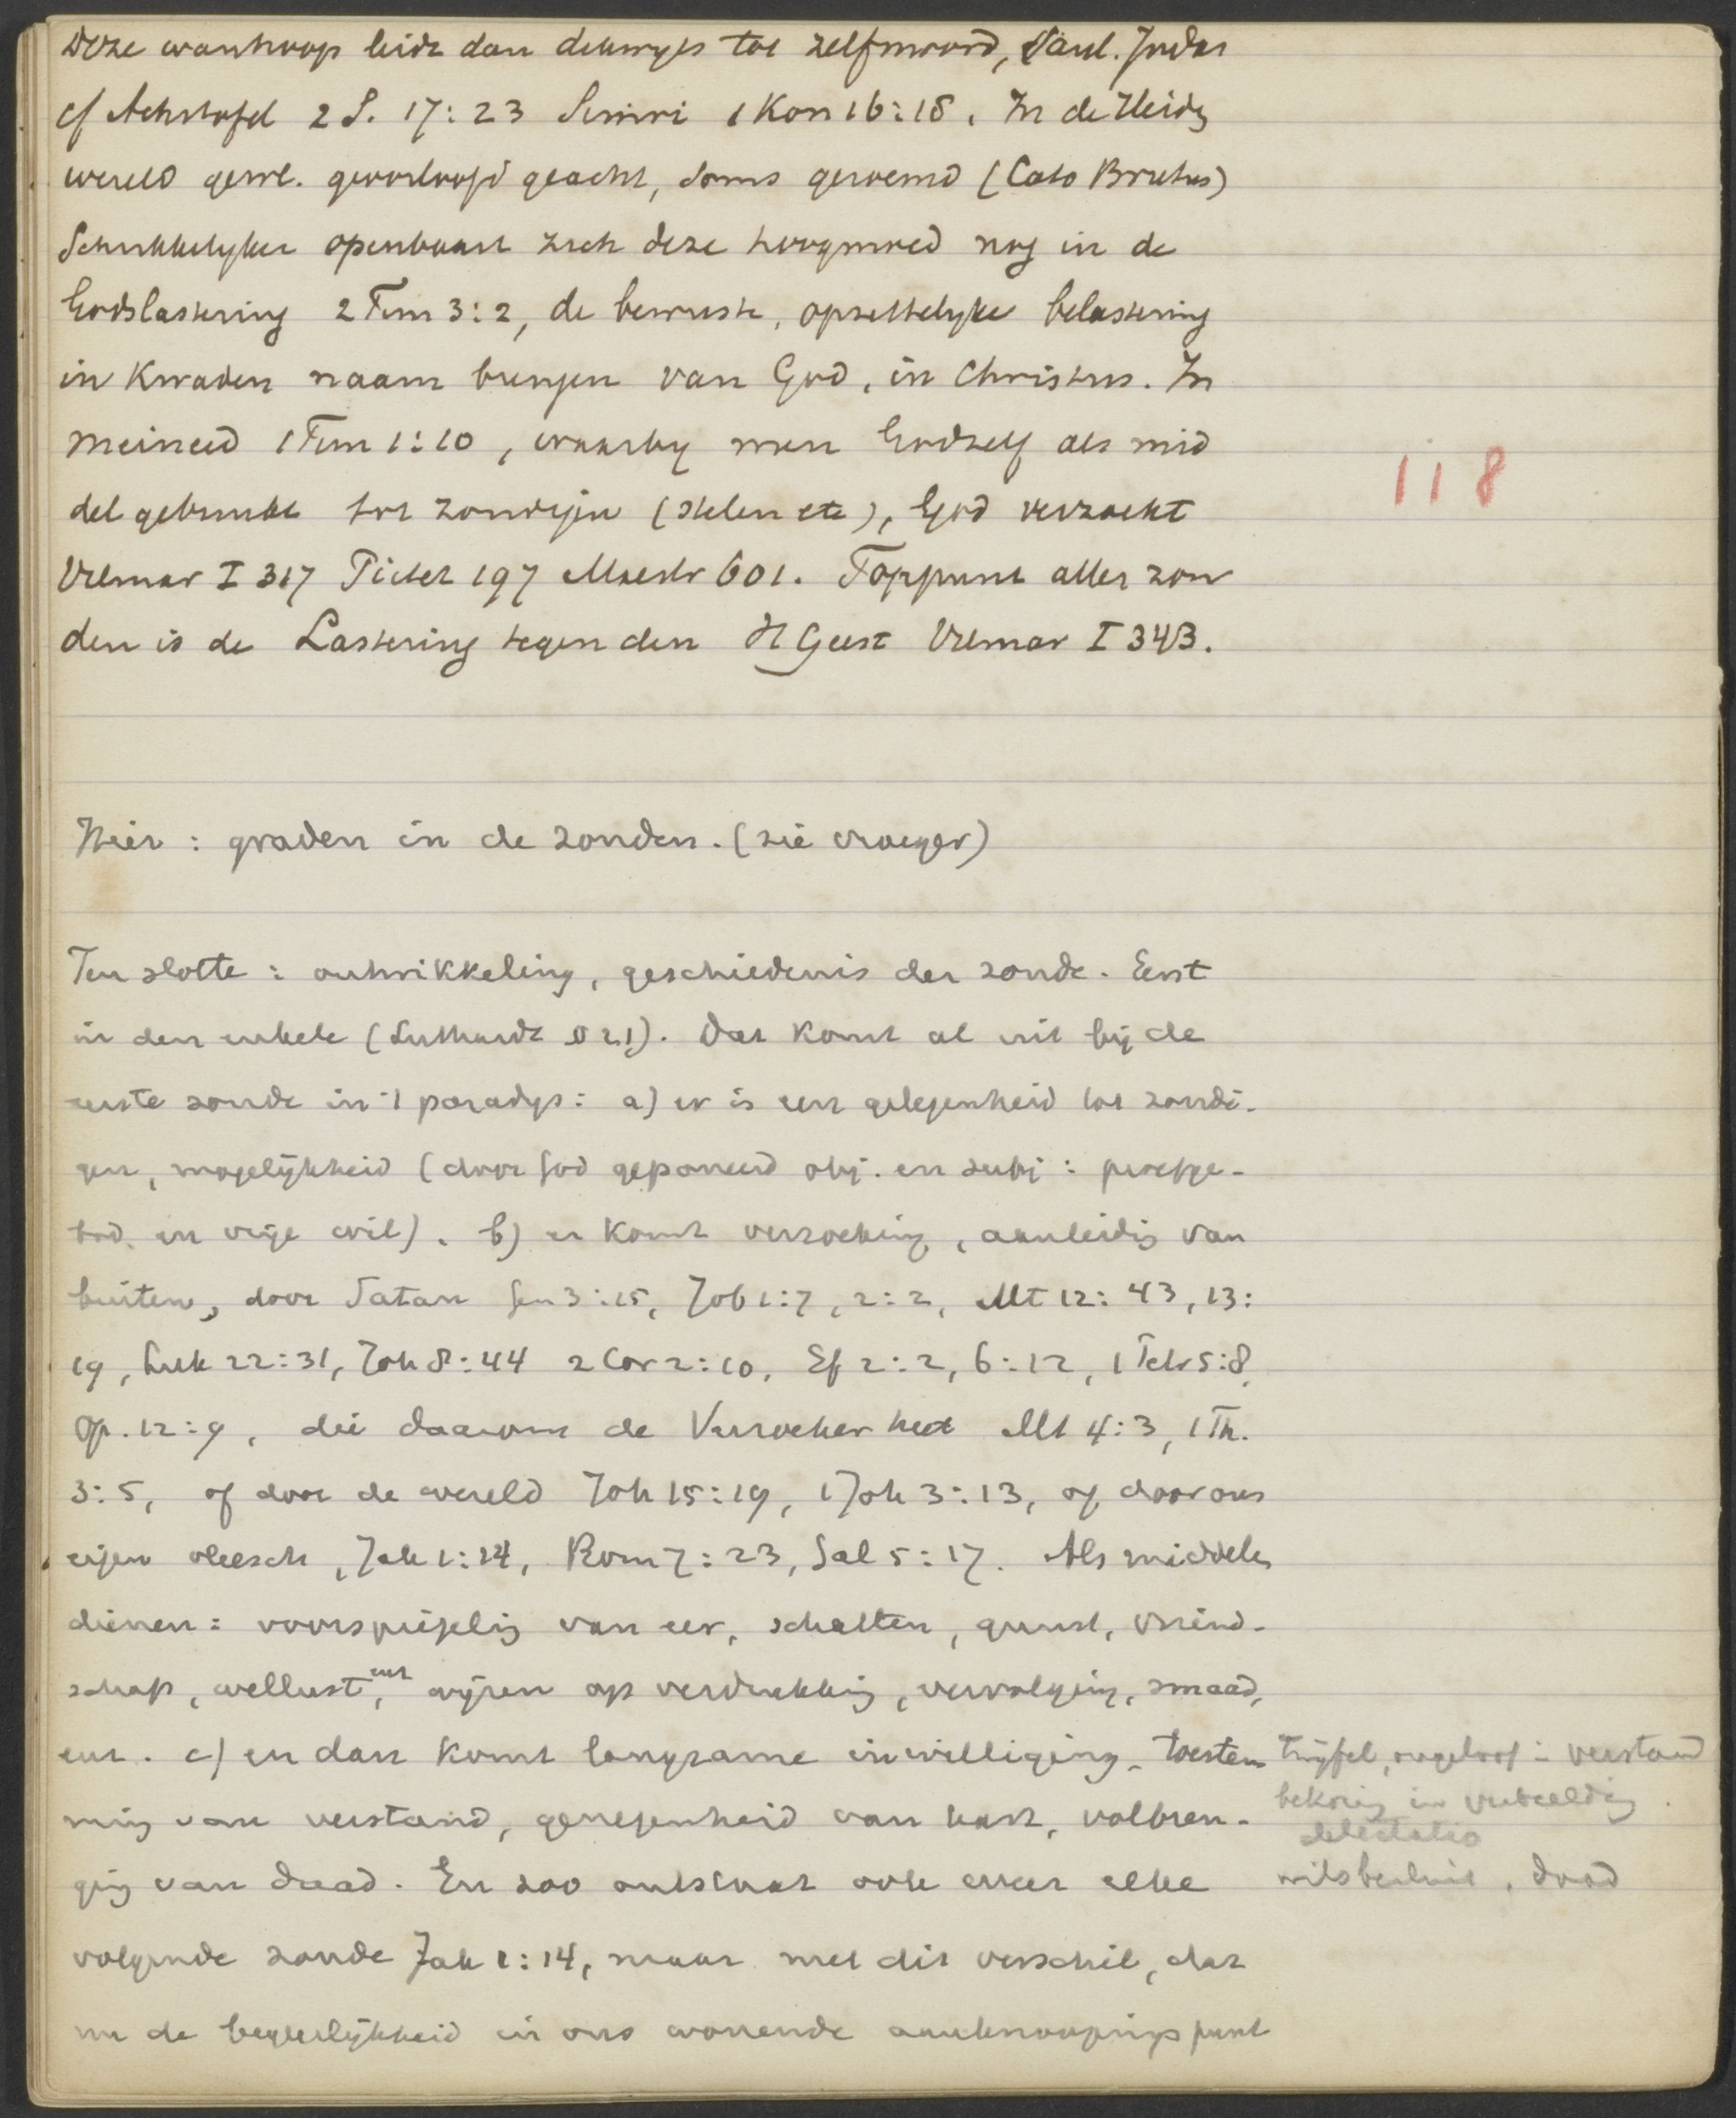 Deze wanhoop leidt dan dikwyls tot zelfmoord, Saul. Judas
cf Achitofel 2 S. 17:23 Simri 1 Kon 16:18. In de Heidg
wereld gewl. geoorloofd geacht, soms geroemd (Cato Brutus)
Schrikkelyker openbaart zich deze hoogmoed nog in de
Godslastering 2 Tim 3:2, de bewuste, opzettelyke belastering
in kwaden naam brengen van God, in Christus. In
meineed 1 Tim 1:10, waarby men Godzelf als mid
del gebruikt tot zondigen (stelen etc), God verzoekt
Vilmar I 317 Pictet 197 Maestr 601. Toppunt aller zon
den is de Lastering tegen den H Geest Vilmar I 343.
Hier : graden in de zonden. (zie vroeger)
Ten slotte : ontwikkeling, geschiedenis der zonde. Eerst
in den enkele (Luthardt § 21). Dat komt al uit bij de
eerste zonde in 't paradys: a) er is een gelegenheid tot zondi-
gen, mogelijkheid (door God geponeerd obj. en subj : proefge-
bod en vrije wil). b) er komt verzoeking, aanleidig van
buiten, door Satan Gen 3:15, Job 1:7, 2:2, Mt 12:43, 13:
19, Luk 22:31, Joh 8:44 2 Cor 2:10, Ef 2:2, 6:12, 1 Petr 5:8,
Op. 12:9, die daarom de Verzoeker heet Mt 4:3, 1 Th.
3:5, of door de wereld Joh 15:19, 1 Joh 3:13, of door ons
eigen vleesch, Jak 1:14, Rom 7:23, Gal 5:17. Als middelen
dienen : voorspiegelig van eer, schatten, gunst, vriend-
schap, wellust, enz wijzen op verdrukkig, vervolging, smaad,
enz. c) en dan komt langzame inwilliging, toestem
mig van verstand, genegenheid van hart, volbren-
gig van daad. En zoo ontstaat ook weer elke
volgende zonde Jak 1:14, maar met dit verschil, dat
nu de begeerlijkheid in ons wonende aanknoopingspunt
118
Twijfel, ongeloof in verstand
bekorig in verbeeldig.
delectatio
wilsbesluit, daad